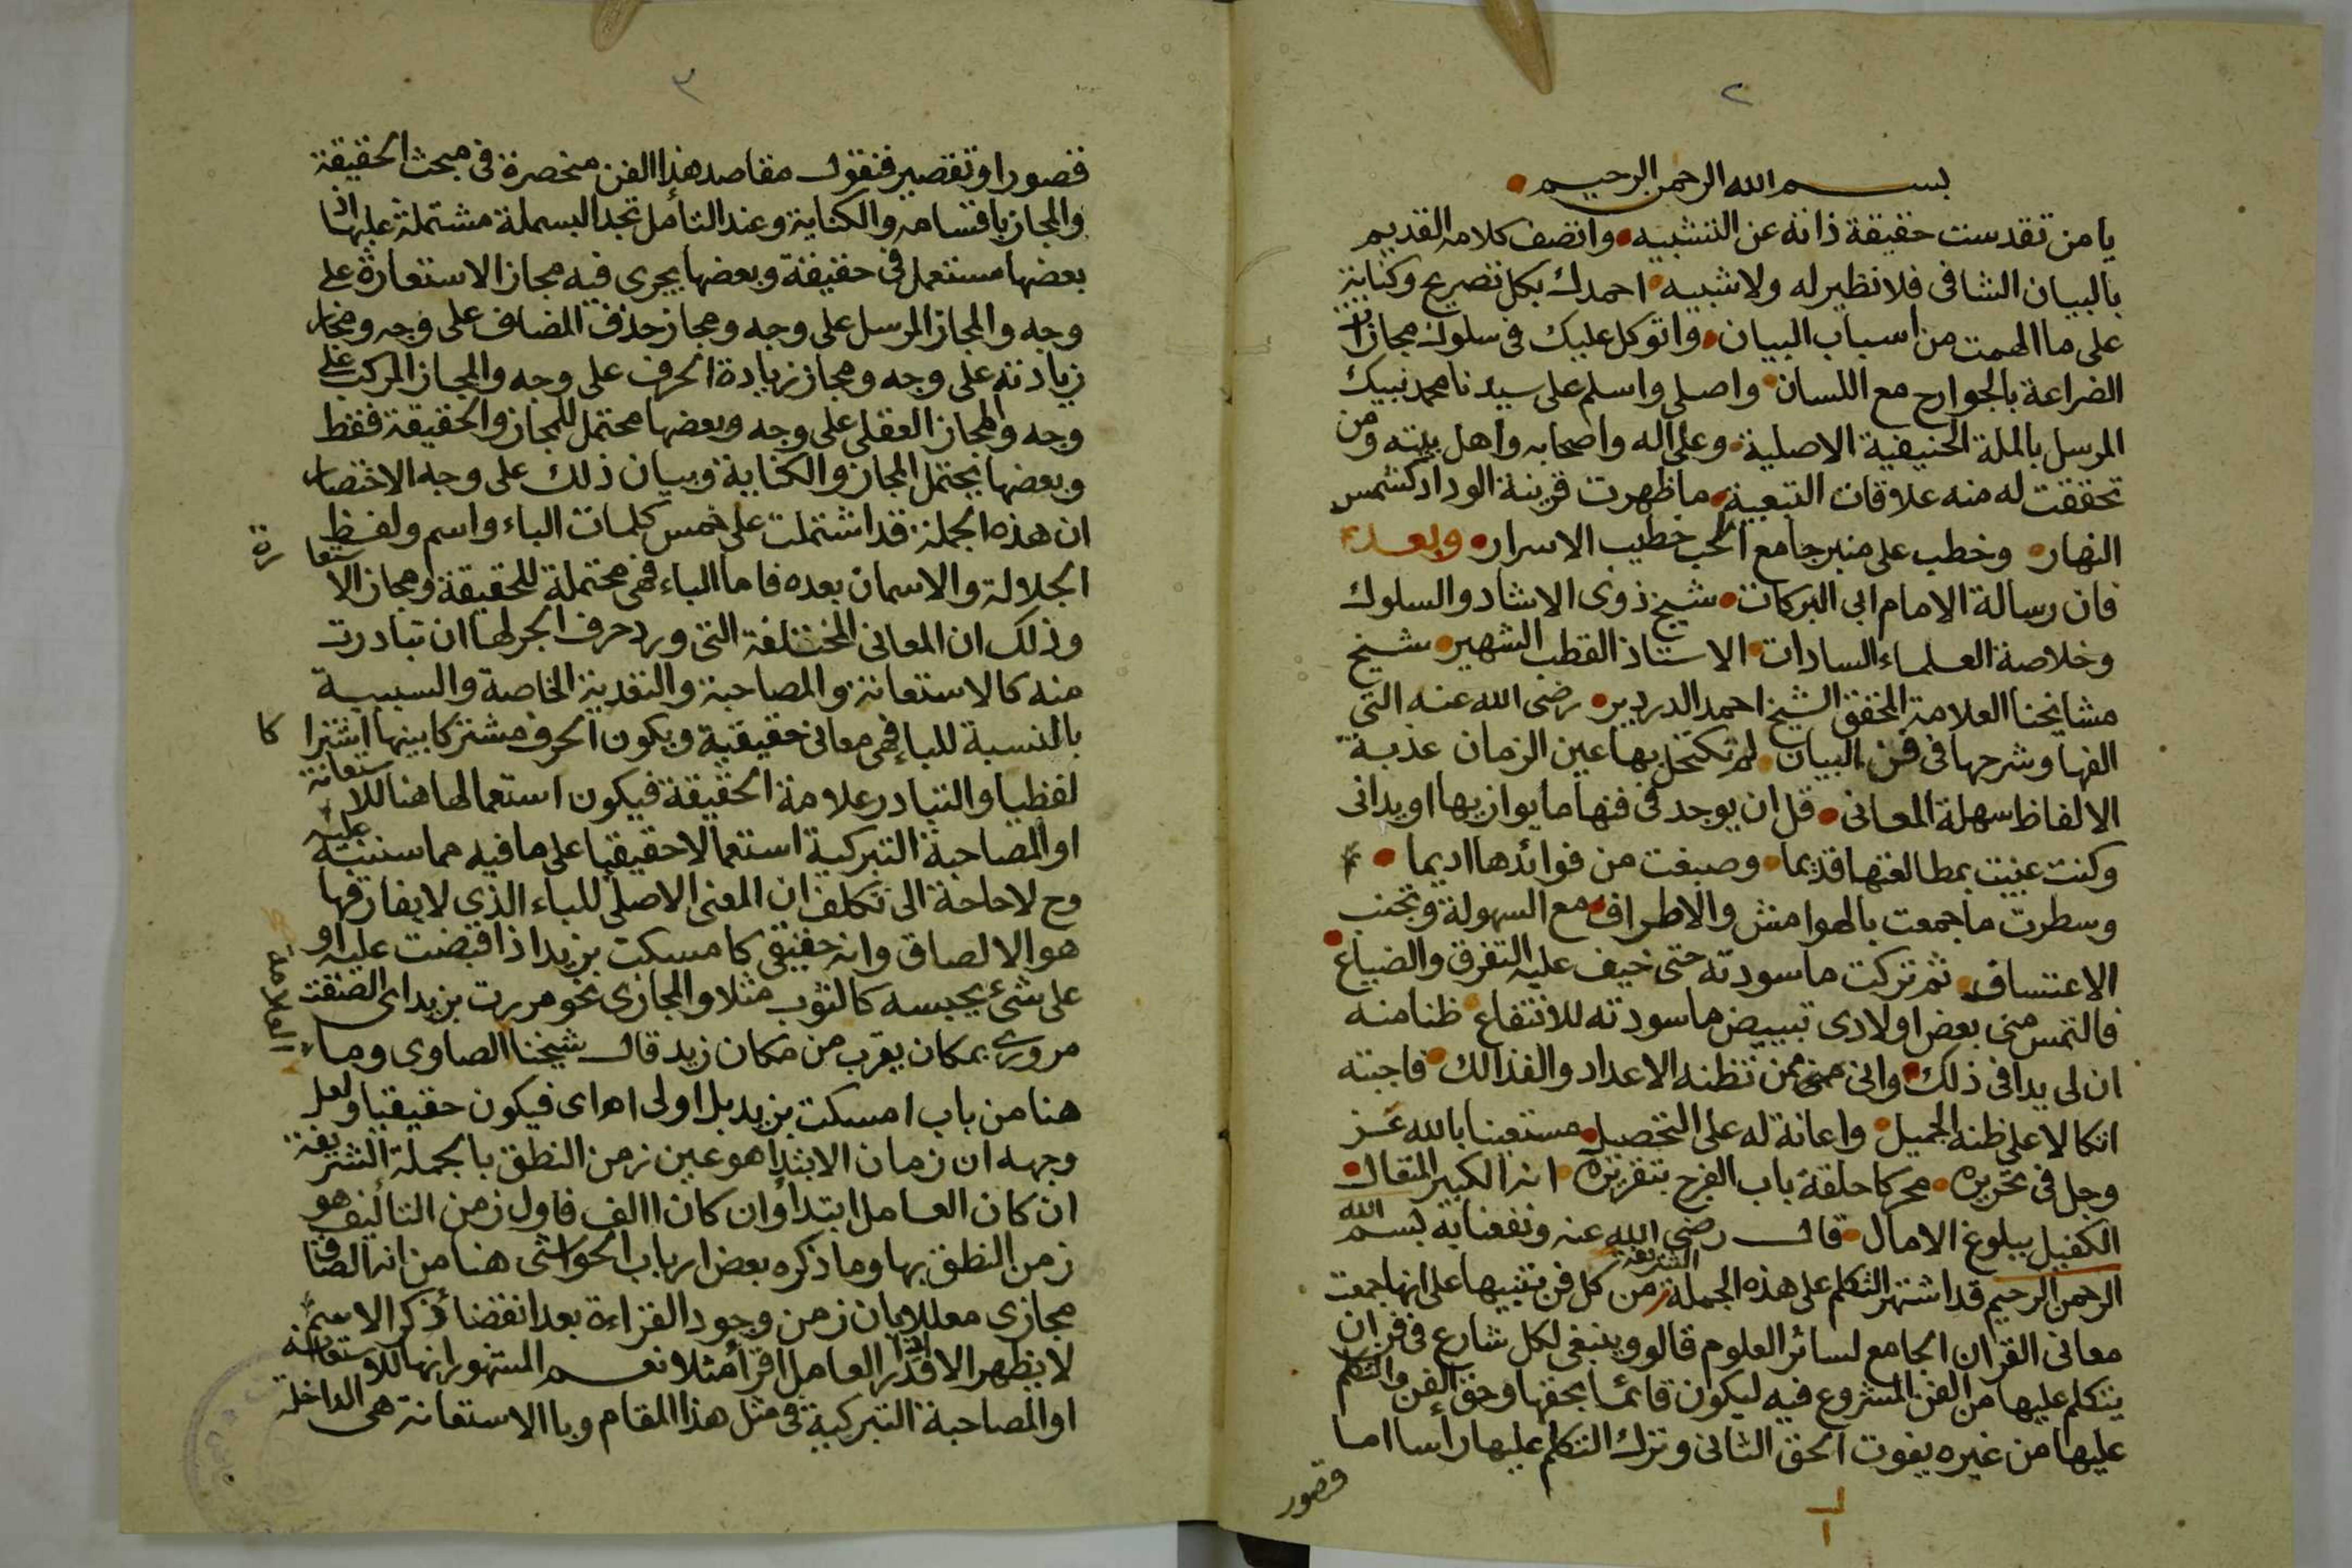 ٢
بسم الله الرحمن الرحيم
يا من تقدست حقيقة ذاته عن التشبيه واتصف كلامه القديم
بالبيان الشافى فلا نظير له ولا شبيه احمدك بكل تصريح وكناية
على ما الهمت من اسباب البيان واتوكل عليك فى سلوك مجازات
الضراعة بالجوارح مع اللسان واصلى واسلم على سيدنا محمد نبيك
المرسل بالملة الحنيفية الاصلية وعلى اله واصحابه واهل بيته ومن
تحققت له منه علاقات التبعية ما ظهرت قرينة الوداد كشمس
النهار وخطب على منبر جامع الحب خطيب الاسرار وبعد
فان رسالة الامام ابى البركات شيخ ذوى الاشاد والسلوك
وخلاصة العلماء السادات الاستاذ القطب الشهير شيخ
مشايخنا العلامة المحقق الشيخ احمد الدردير رضى الله عنه التى
الفها وشرحها فى فن البيان لم تكتحل بها عين الزمان عذبة
الالفاظ سهلة المعانى قل ان يوجد فى فنها ما يوازيها او يدانى
وكنت عنيت بمطالعتها قديما وصبغت من فوائدها اديما
وسطرت ما جمعت بالهوامش والاطراف مع السهولة وتجنب
الاعتساف ثم تركت ما سودته حتى خيف عليه التفرق والضياع
فالتمس منى بعض اولادى تبييض ما سودته للانتفاع ظنا منه
ان لى يدا فى ذلك وانى ممن تظنه الاعداد والفذالك فاجبته
اتكالا على ظنه الجميل واعانة له على التحصيل مستعينا بالله عز
وجل فى تحريره محركا حلقة باب الفرج بتقريره انه الكبير المتعال
الكفيل ببلوغ الامال قال رضى الله عنه ونفعنا به بسم الله
الرحمن الرحيم قد اشتهر التكلم على هذه الجملة الشريفة من كل فن تنبيها على انها جمعت
معانى القران الجامع لسائر العلوم قالو وينبغى لكل شارع فى فن ان
يتكلم عليها من الفن المشروع فيه ليكون قائما بحقها وحق الفن والتكلم
عليها من غيره يفوت الحق الثانى وترك التكلم عليها راسا اما
قصور
٣
قصورا وتقصير فنقول مقاصد هذا الفن منحصرة فى مبحث الحقيقة
والمجاز باقسامه والكناية وعند التأمل تجد البسملة مشتملة عليها اذ
بعضها مستعمل فى حقيقة وبعضها يجرى فيه مجاز الاستعارة على
وجه والمجاز المرسل على وجه ومجاز حذف المضاف على وجه ومجاز
زيادته على وجه ومجاز زيادة الحرف على وجه والمجاز المركب على
وجه والمجاز العقلى على وجه وبعضها محتمل للمجاز والحقيقة فقط
وبعضها يحتمل المجاز والكناية وبيان ذلك على وجه الاختصار
ان هذه الجملة قد اشتملت على خمس كلمات الباء واسم ولفظ
الجلالة والاسمان بعده فاما الباء فهى محتملة للحقيقة ومجاز الاستعارة
وذلك ان المعانى المختلفة التى ورد حرف الجر لها ان تبادرت
منه كالاستعانة والمصاحبة والتعدية الخاصة والسببية
بالنسبة للباء فهى معانى حقيقية ويكون الحرف مشتركا بينها اشتراكا
لفظيا والتبادر علامة الحقيقة فيكون استعمالها هنا للاستعانة
او المصاحبة التبركية استعمالا حقيقيا على ما فيه مما سننبه عليه
وح لا حاجة الى تكلف ان المعنى الاصلى للباء الذى لا يفارقها
هو الالصاق وانه حقيقى كامسكت بزيد اذا قبضت عليه او
على شئ يحبسه كالثوب مثلا والمجازى نحو مررت بزيد اى الصقت
مرورى بمكان يقرب من مكان زيد قال شيخنا العلامة الصاوى وما
هنا من باب امسكت بزيد بل اولى اه اى فيكون حقيقيا ولعل
وجهه ان زمان الابتدا هو عين زمن النطق بالجملة الشريفة
ان كان العامل ابتدأ وان كان االف فاول زمن التأليف هو
زمن النطق بها وما ذكره بعض ارباب الحواشى هنا من انه الصاق
مجازى معللا بان زمن وجود القراءة بعد انقضا ذكر الاسم
لا يظهر الا اذا قدر العامل اقرأ مثلا نعم المشهور انها للاستعانة
او المصاحبة التبركية فى مثل هذا المقام وبا الاستعانة هى الداخلة